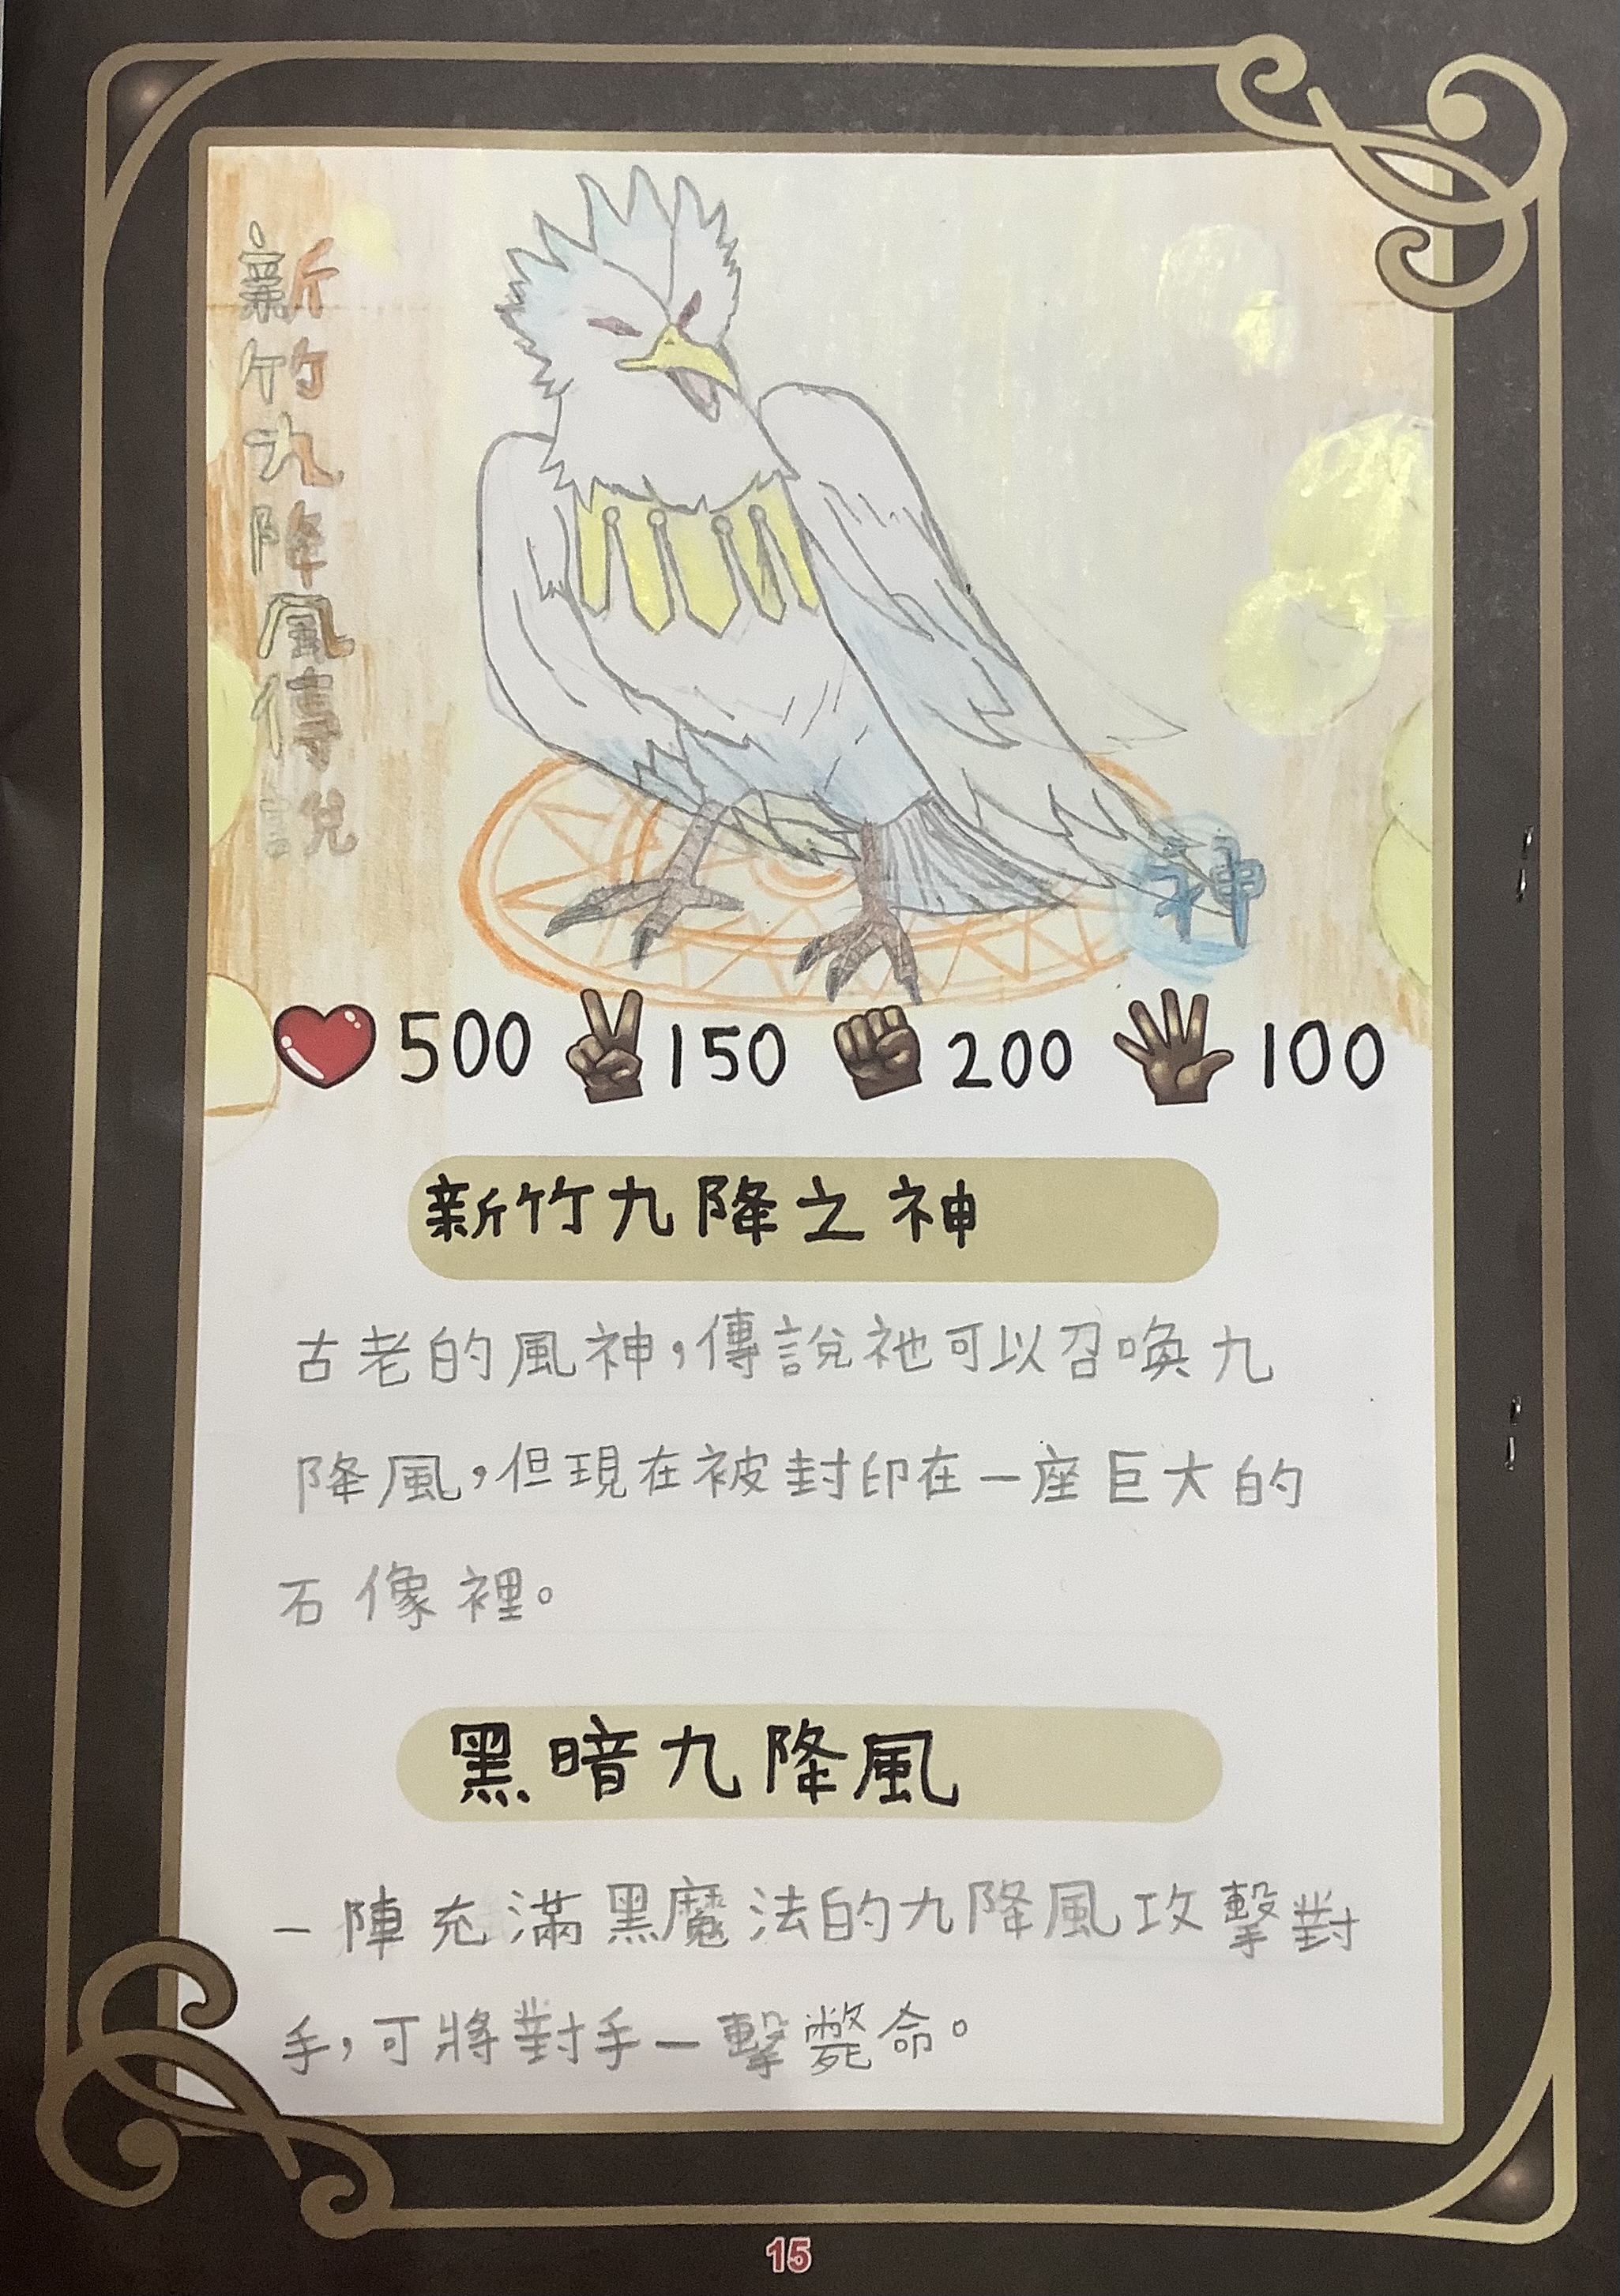 新竹九降風傳說
神
500 150 200 100
新竹九降之神
古老的風神，傳說祂可以召喚九
降風，但現在被封印在一座巨大的
石像裡。
黑暗九降風
一陣充滿黑魔法的九降風攻擊對
手，可將對手一擊斃命。
15